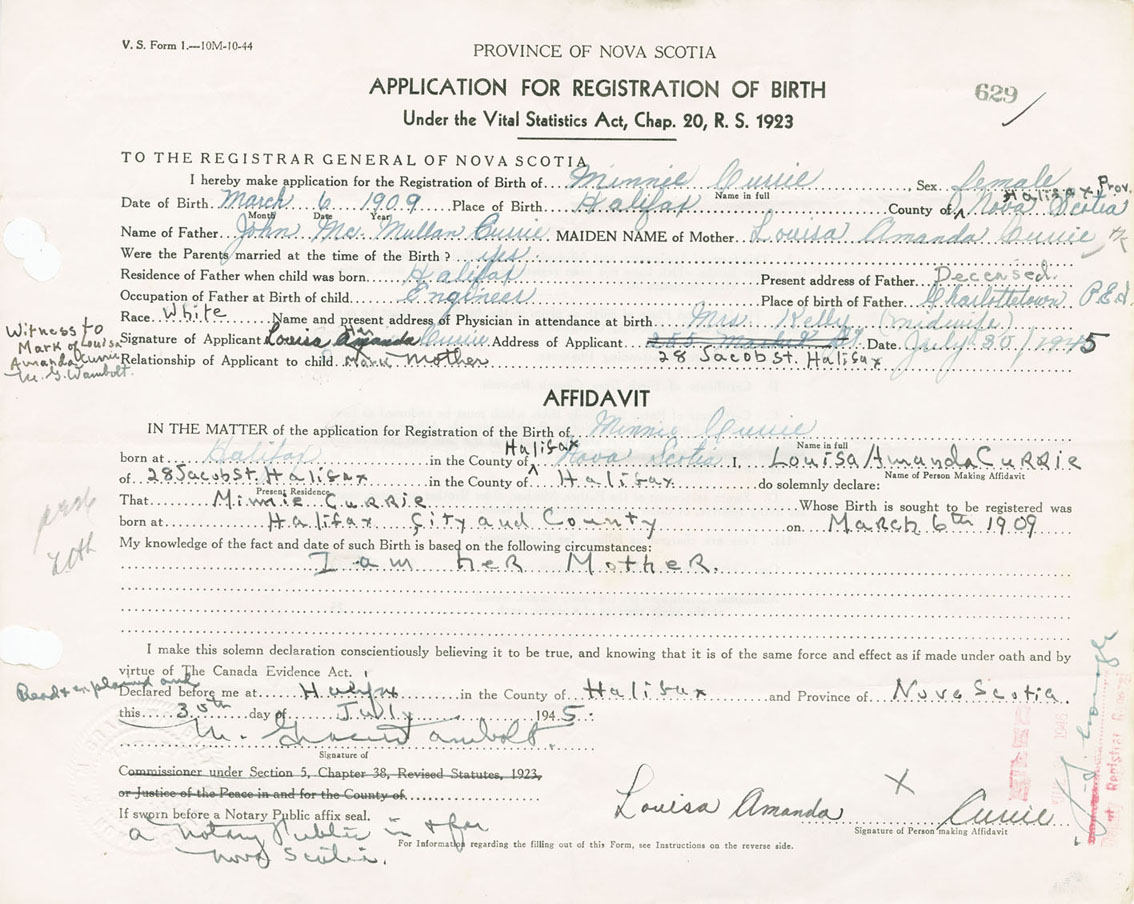 V. S. Form 1.—10M-10-44
PROVINCE OF NOVA SCOTIA
APPLICATION FOR REGISTRATION OF BIRTH
629
Under the Vital Statistics Act, Chap. 20, R. S. 1923
TO THE REGISTRAR GENERAL OF NOVA SCOTIA
I hereby make application for the Registration of Birth of Minnie Currie, Sex female
Name in full
Halifax Prov.
Date of Birth March 6 1909 Place of Birth Halifax County of Nova Scotia
Month Date Year
Name of Father John Mc. Mullan Currie MAIDEN NAME of Mother Louisa Amanda Currie
Were the Parents married at the time of the Birth ? yes.
Residence of Father when child was born Halifax Present address of Father Deceased.
Occupation of Father at Birth of child Engineer Place of birth of Father Charlottetown, P.E.I.
Race White Name and present address of Physician in attendance at birth Mrs. Kelly (midwife)
Witness to Mark of Louisa Amanda Currie
M. G. Wambolt
Signature of Applicant Louisa Amanda Currie Address of Applicant 255 Market St Date July 30/1945
Her
Mark
Relationship of Applicant to child Mother 28 Jacob St. Halifax
AFFIDAVIT
IN THE MATTER of the application for Registration of the Birth of Minnie Currie
Name in full
Halifax
born at Halifax in the County of Nova Scotia I, Louisa Amanda Currie
Name of Person Making Affidavit
of 28 Jacob St. Halifax in the County of Halifax do solemnly declare:
Present Residence
That Minnie Currie Whose Birth is sought to be registered was
born at Halifax City and County on March 6th 1909
My knowledge of the fact and date of such Birth is based on the following circumstances:
I am her Mother.
I make this solemn declaration conscientiously believing it to be true, and knowing that it is of the same force and effect as if made under oath and by
virtue of The Canada Evidence Act.
Read & explained and
Declared before me at Halifax in the County of Halifax and Province of Nova Scotia.
this 30th day of July 1945.
M. Grace Wambolt.
Signature of
Commissioner under Section 5, Chapter 38, Revised Statutes, 1923,
or Justice of the Peace in and for the County of
If sworn before a Notary Public affix seal.
a Notary Public in & for
Nova Scotia.
Louisa Amanda X Currie
Signature of Person making Affidavit
For Information regarding the filling out of this Form, see Instructions on the reverse side.